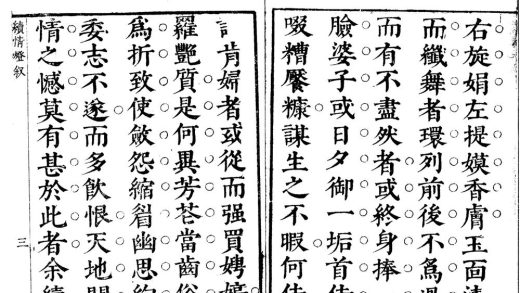 右旋娟左提嫫香膚玉面
而纖舞者環列前後不為
而有不盡然者或終身捧
臉婆子或日夕御一垢首
啜糟饜糠謀生之不暇何
肯婦者或從而强買娉婷
羅艷質是何異芳苍當齒俗
為折致使斂怨縮眉幽思
委志不遂而多飲恨天地間
情之憾莫有甚於此者余續
續情燈叙
三